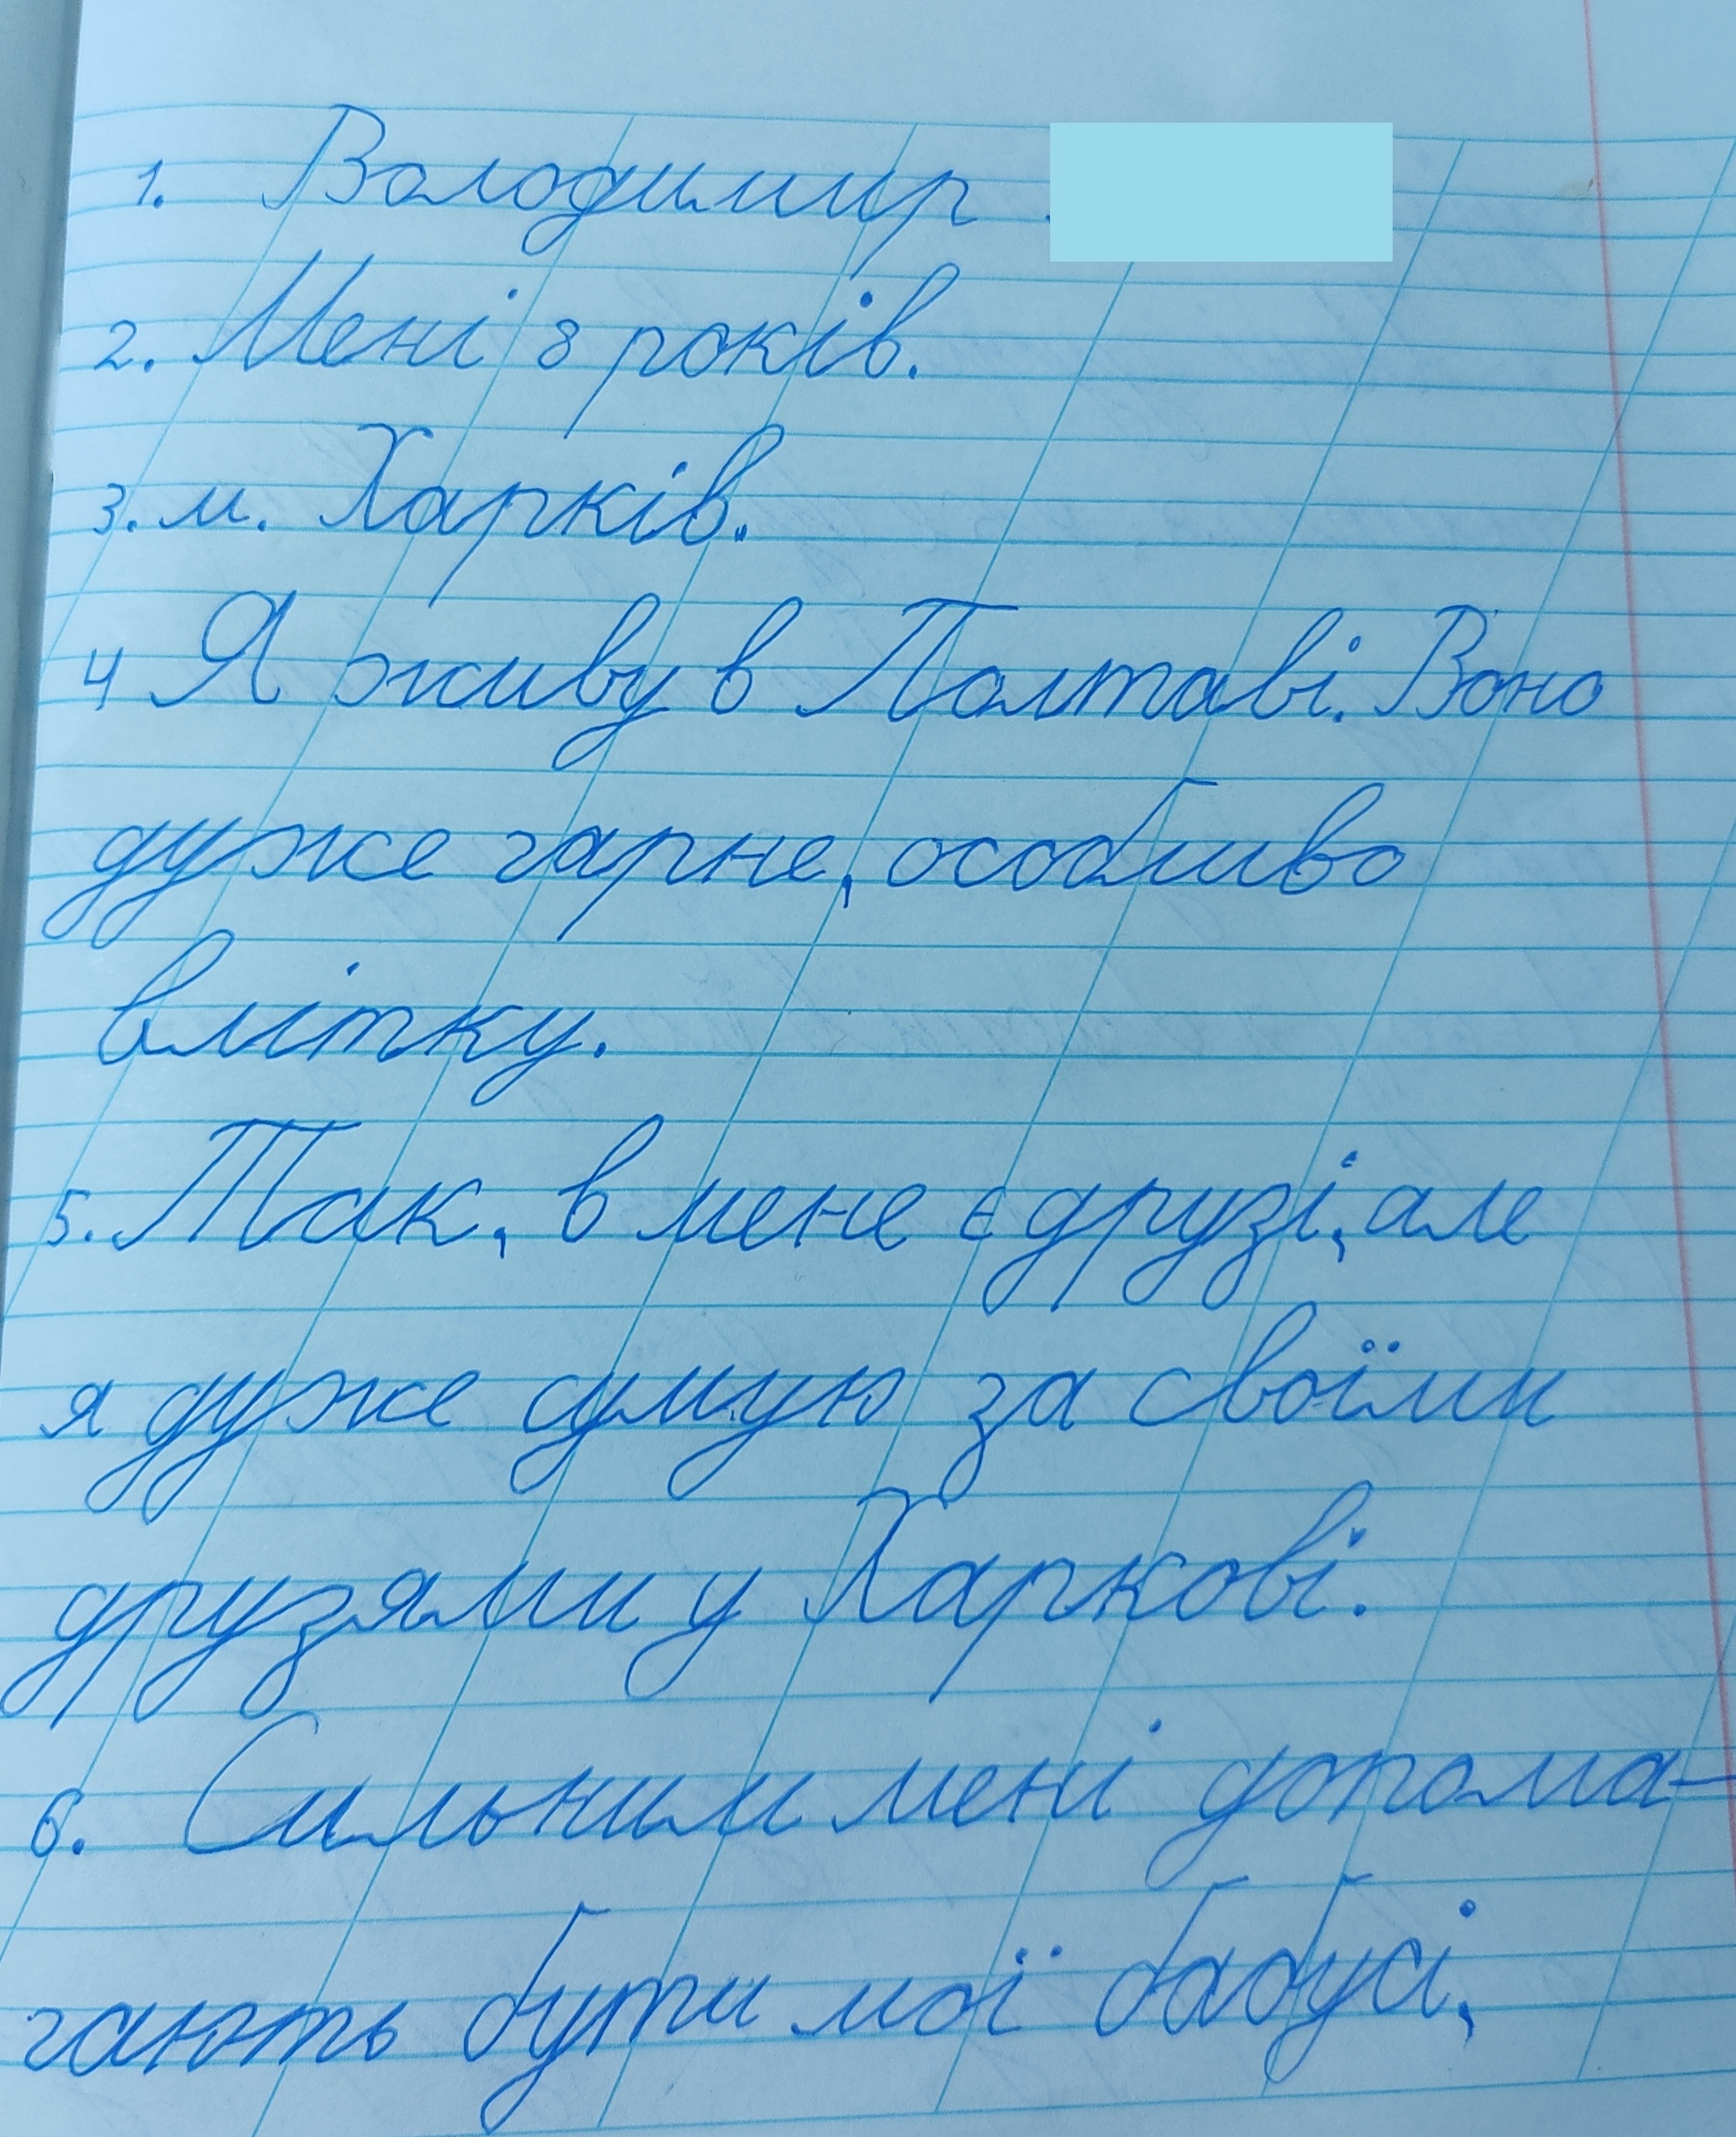 1. Володимир
2. Мені 8 років.
3. м. Харків.
4 Я живу в Полтаві. Воно
дуже гарне, особливо
влітку.
5. Так, в мене є друзі, але
я дуже сумую за своїми
друзями у Харкові.
6. Сильним мені допома-
гають бути мої бабусі,